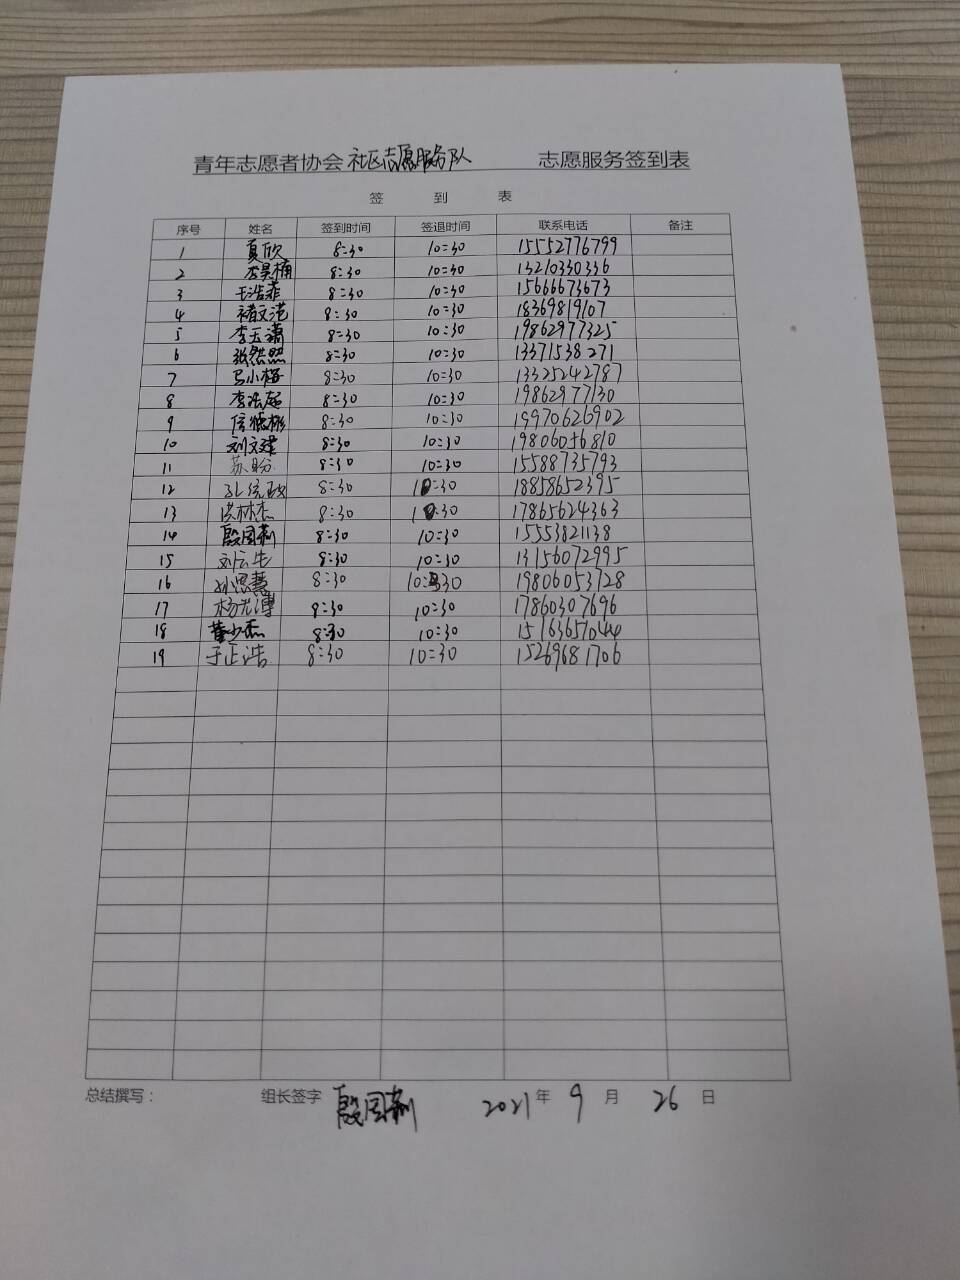 青年志愿者协会 社区志愿服务队 志愿服务签到表
签 到 表
序号 姓名 签到时间 签退时间 联系电话 备注
1 夏欣 8:30 10:30 15552776799
2 8:30 10:30 13210330336
3 王浩菲 8:30 10:30 15666673673
4 褚文洋 8:30 10:30 18369819107
5 李玉潇 8:30 10:30 19862977325
6 张然然 8:30 10:30 13371538271
7 马小梅 8:30 10:30 13325242787
8 李泓超 8:30 10:30 19862977130
9 8:30 10:30 15970626902
10 刘文建 8:30 10:30 19806056810
11 苏盼 8:30 10:30 15588735793
12 孔统政 8:30 10:30 18858652395
13 洪林杰 8:30 10:30 17865624363
14 殷国莉 8:30 10:30 15553821138
15 刘云生 8:30 10:30 13156072995
16 孙思慧 8:30 10:30 19806053728
17 杨龙溥 8:30 10:30 17860307696
18 董少杰 8:30 10:30 15163657044
19 于正浩 8:30 10:30 15269681706
总结撰写： 组长签字 殷国莉 2021 年 9 月 26 日